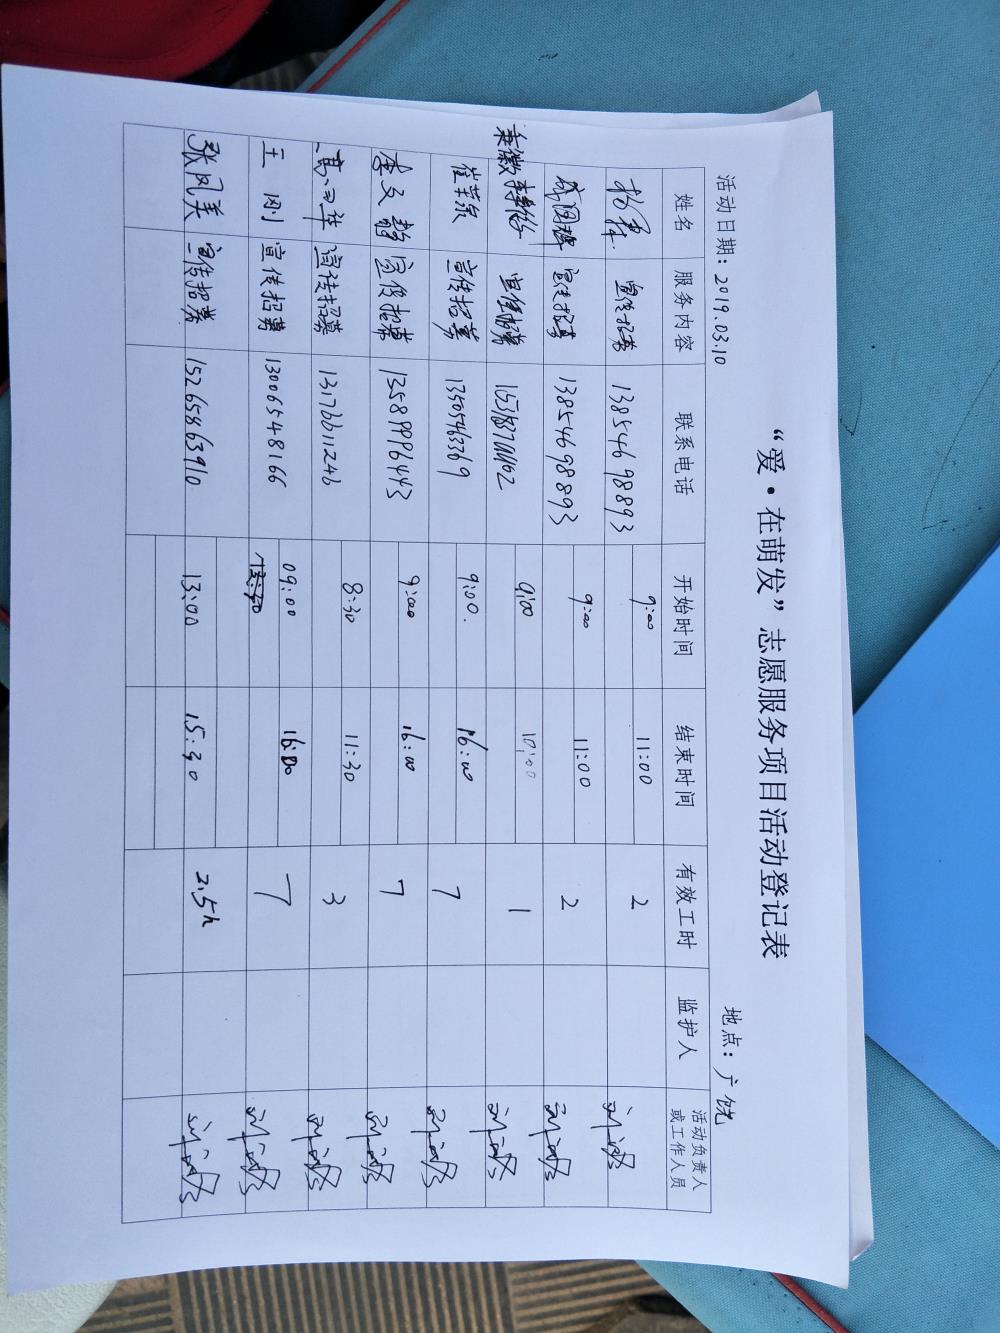 “爱·在萌发”志愿服务项目活动登记表
活动日期：2019.03.10 地点：广饶
姓名 服务内容 联系电话 开始时间 结束时间 有效工时 监护人 活动负责人或工作人员
宣传招募 13854698893 9:00 11:00 2
宣传招募 13854698893 9:00 11:00 2
宣传招募 9:00 10:00 1
崔荣泉 宣传招募 13505463369 9:00. 16:00 7
李文静 宣传招募 13589996443 9:00 16:00 7
宣传招募 13176611246 8:30 11:30 3
王刚 宣传招募 13006548166 09:00 16:00 7
张凤美 宣传招募 15265863910 13:00 15:30 2.5h